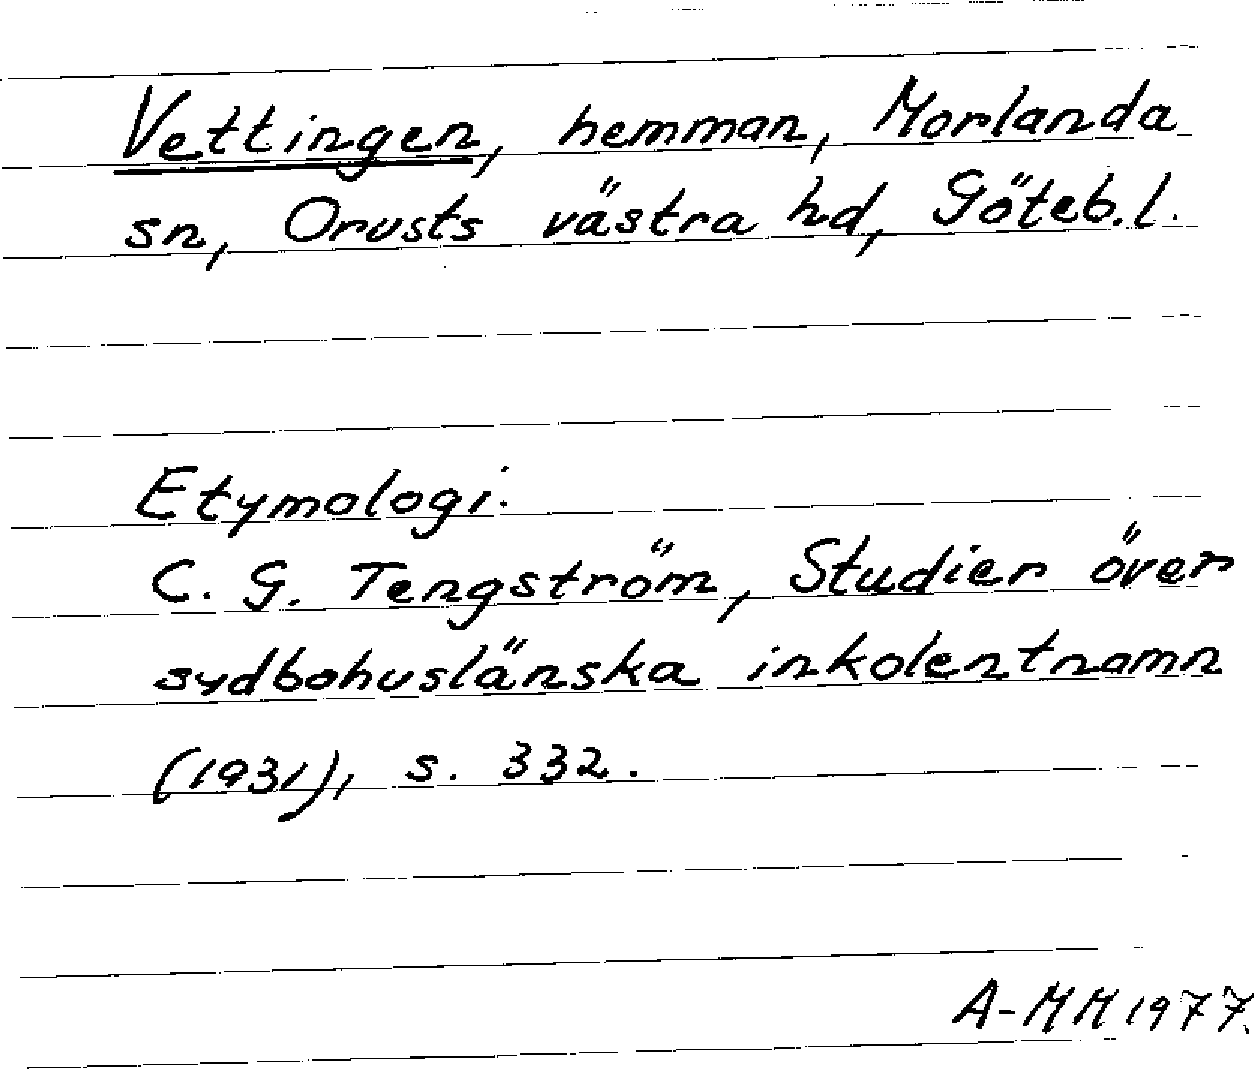 Vettingen, hemman, Morlanda
sn, Orusts västra hd, Göteb.l.
Etymologi.
C. G. Tengström, Studier över
sydbohuslänska inkolentnamn
(1931), s. 332.
A-MM 1977.